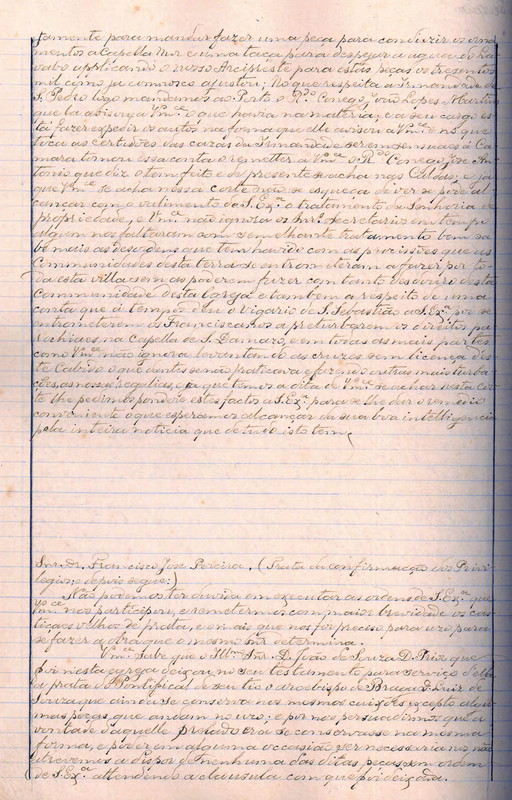 tamente para mandar fazer uma peça para conduzir os orna-
mentos a Capella Mor e uma taça para despejar a agua do La-
vabo applicando o nosso Arcipreste para estas peças os tresentos
mil como ja comnosco ajustou; No que respeita a Irmandade de
S. Pedro logo mandamos ao Porto o R.do Conego João Lopes Martins
que la avisou a Vm.ce o que houve na materia, e a seu cargo es-
tá fazer expedir os autos na forma que elle avisou a Vm.ce e no que
toca as certidões das cazas da Irmandade serem sensuaes á Ca-
mara tomou essa conta o remetter a Vm.ce o R.do Conego José An-
tonio que diz o tem feito e de presente se acha nas Caldas; e ja
que Vm.ce se acha nessa corte não se esqueça de ver se pode al-
cançar com o valimento de S. Ex.a o tratamento de Senhoria de
propriedade, e Vm.ce não ignora os Snr.s Secretarios em tempo
algum nos faltaram com semelhante tratamento bem sa-
be mais as desordens que tem havido com as procissões que as
Communidades desta terra se entrometeram a fazer por to-
da esta villa sem as poderem fazer com tanto desdouro desta
Communidade desta Igreja e tambem a respeito de uma
conta que á tempos deu o vigario de S. Sebastião a S. Ex.a por se
entrometerem os Franciscanos a preturbarem os direitos pa-
rochiaes, na Capella de S. Damazo, e em todas as mais partes
como Vm.ce não ignora levantando as cruzes sem licença des-
te Cabido o que dantes não praticava e fazendo outras mais turba-
ções as nossas regalias, e ja que temos a dita de Vm.ce se achar nesta cor-
te lhe pedimos ponde estes factos a S. Ex.a para se lhe dar o remedio
conveniente o que esperamos alcançar da sua boa intelligencia
pela inteira noticia que de tudo isto tem,
Snr. Dr. Francisco José Pereira. (Trata da confirmação dos Privi-
legios; e depois segue:)
Não podemos ter duvida em executar as ordens de S. Ex.a que
Vm.ce nos participou, e remetermos com maior brevidade os cas-
tiçaes velhos de prata, e o mais que nos for preciso para uzo para
se fazer a obra que o mesmo Snr determina.
Vm.ce sabe que o Ill.mo Snr. D. João de Souza D. Prior que
foi nesta egreja deixou no seu testamento para serviço d'ella
a prata do Pontifical de seu tio o arcebispo de Braga D. Luiz de
Souza que ainda se conserva nos mesmos caixões excepto algu-
mas peças que andam no uzo; e por nos persuadirmos que a
vontade daquelle prelado era se conservasse na mesma
forma, e poder em alguma occasião ser necessaria nos não
atrevemos a dispor de nenhuma das ditas peças sem ordem
de S. Ex.a attendendo a clausula com que foi deixada.